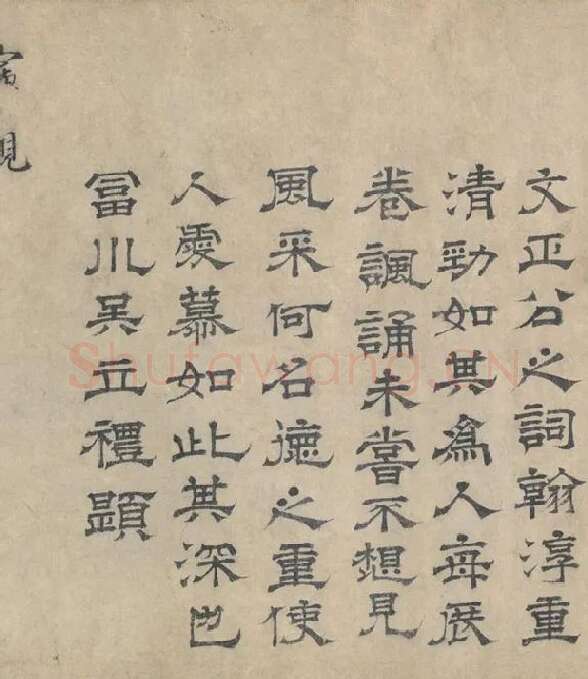 文正公之詞翰淳重
清勁如其爲人每展
卷諷誦未嘗不想見
風采何名德之重使
人愛慕如此其深也
冨川吳立禮題
Shufawang.CN